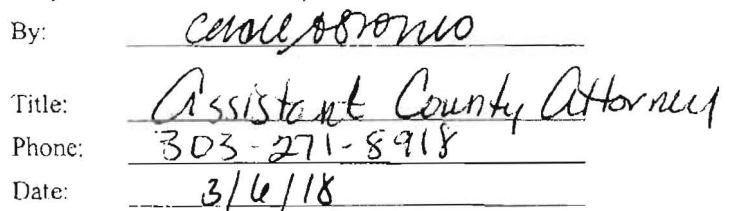 By:
Title: Assistant County Attorney
Phone: 303-271-8918
Date: 3/6/18